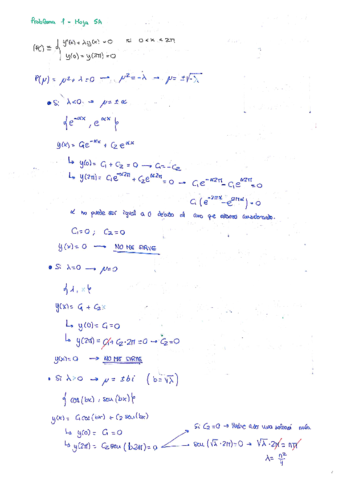 Problema 1 - Hoja 5A
(PC) ≡ { y''(x) + λy(x) = 0 si 0 < x < 2π
y(0) = y(2π) = 0
P(μ) = μ² + λ = 0 → μ² = -λ → μ = ±√-λ
• Si λ<0 → μ = ±α
{e^-αx, e^αx}
y(x) = C₁e^-αx + C₂e^αx
↳ y(0) = C₁ + C₂ = 0 → C₁ = -C₂
↳ y(2π) = C₁e^-α2π + C₂e^α2π = 0 → C₁e^-α2π - C₁e^α2π = 0
C₁(e^-2πα - e^2πα) = 0
α no puede ser igual a 0 debido al caso que estamos considerando.
C₁=0 ; C₂=0
y(x) = 0 → NO ME SIRVE
• Si λ=0 → μ=0
y(x) = C₁ + C₂x
↳ y(0) = C₁ = 0
↳ y(2π) = C₁ + C₂·2π = 0 → C₂ = 0
y(x)=0 → NO ME SIRVE
• Si λ>0 → μ = ±bi (b=√λ)
{cos(bx), sen(bx)}
y(x) = C₁cos(bx) + C₂sen(bx)
↳ y(0) = C₁ = 0
Si C₂=0 → vuelve a ser una solución nula
↳ y(2π) = C₂sen(b2π) = 0 → sen(√λ·2π)=0 → √λ·2π = nπ
λ = n²/4